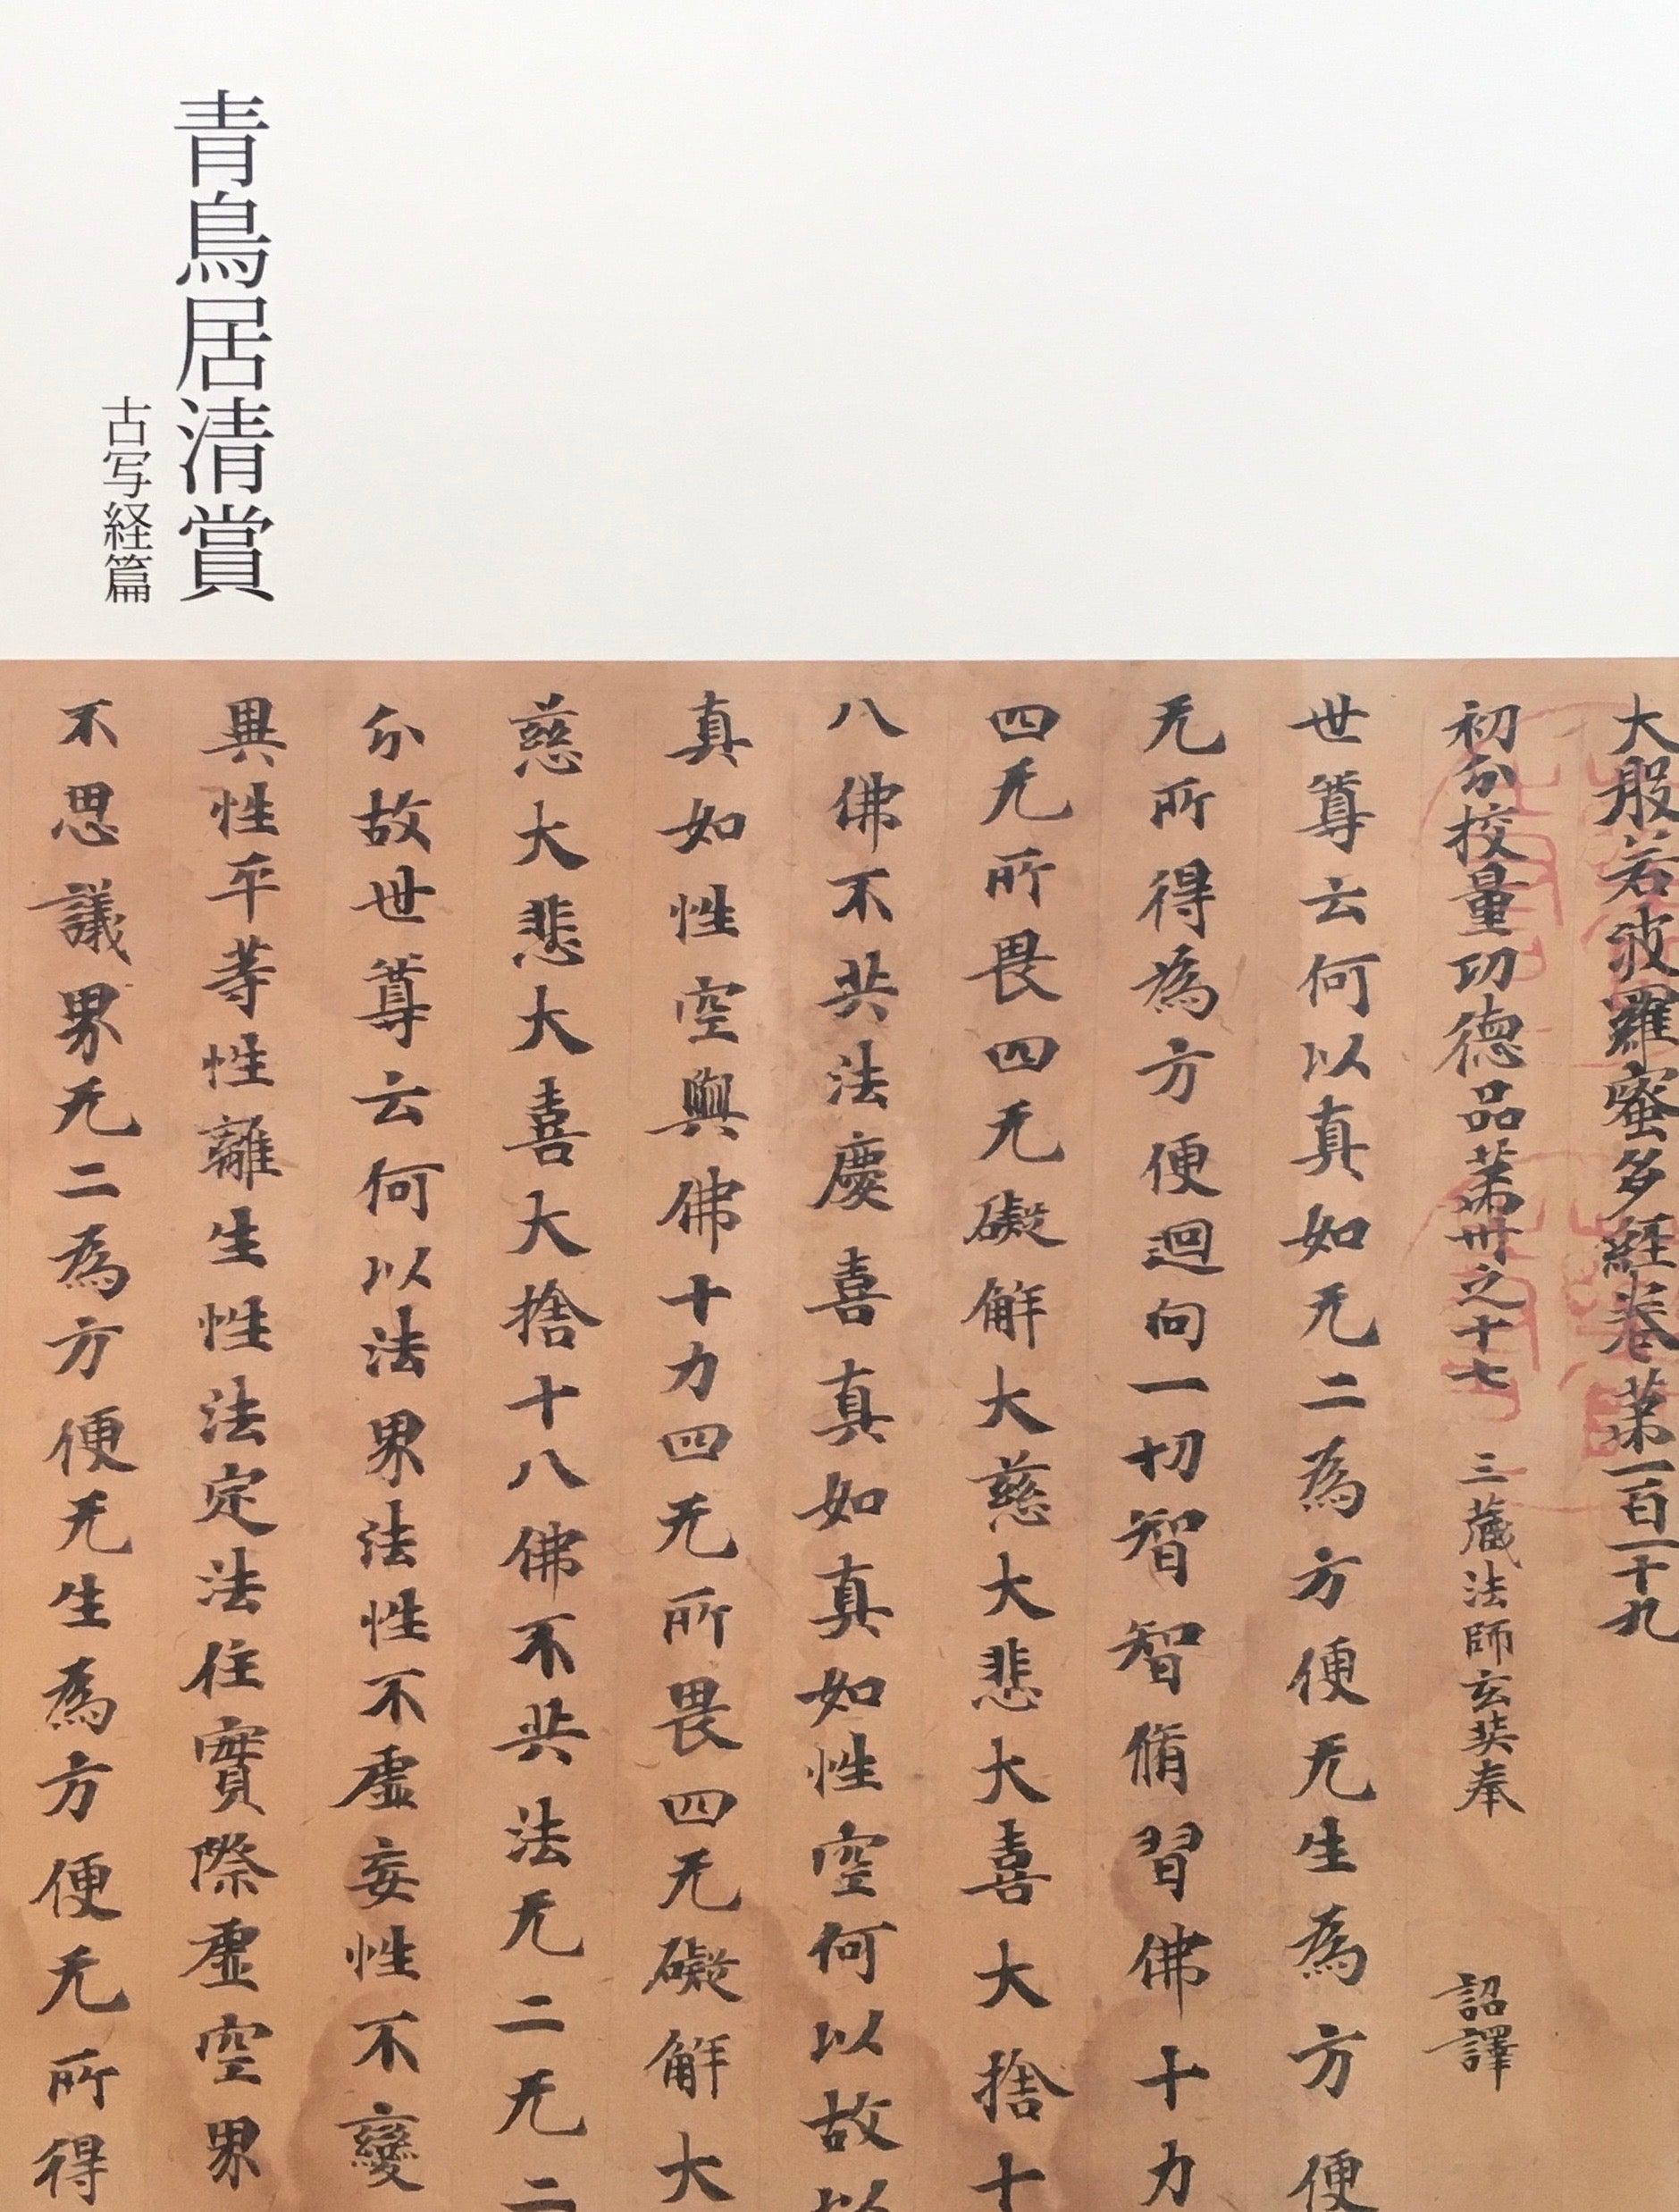 青鳥居清賞
古写経篇
大般若波羅蜜多經卷第一百一十九
初分校量功德品第卅之十七 三藏法師玄奘奉 詔譯
世尊云何以真如无二為方便无生為方便
无所得為方便迴向一切智智脩習佛十力
四无所畏四无礙解大慈大悲大喜大捨十
八佛不共法慶喜真如真如性空何以故以
真如性空與佛十力四无所畏四无礙解大
慈大悲大喜大捨十八佛不共法无二无二
分故世尊云何以法界法性不虛妄性不變
異性平等性離生性法定法住實際虛空界
不思議界无二為方便无生為方便无所得